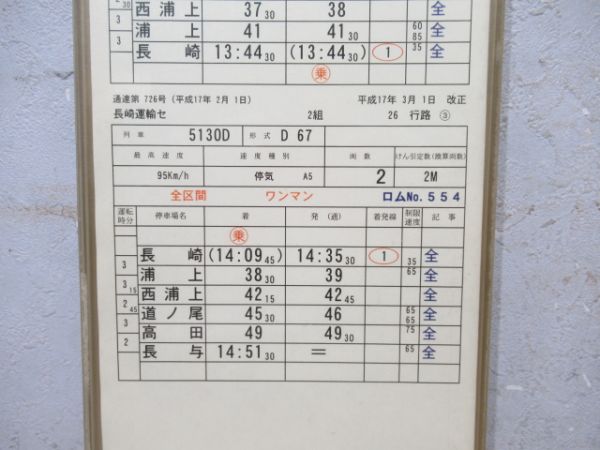 西浦上 37 30 38 全
3 浦上 41 41 30 60 85 全
3 長崎 13:44 30 (13:44 30) 1 35 全
乗
通達第 726号 (平成17年 2月 1日) 平成17年 3月 1日 改正
長崎運輸セ 2組 26 行路 ③
列車 5130D 形式 D 67
最高速度 速度種別 両数 けん引定数(換算両数)
95Km/h 停気 A5 2 2M
全区間 ワンマン ロムNo.554
運転時分 停車場名 着 発(通) 着発線 制限速度 記事
乗
長崎 (14:09 45) 14:35 30 1 35 全
3 浦上 38 30 39 65 全
3 15 西浦上 42 15 42 45 全
2 45 道ノ尾 45 30 46 65 65 全
3 高田 49 49 30 75 全
2 長与 14:51 30 = 65 全